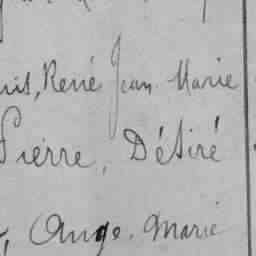 René Jean Marie
Pierre, Désiré
, Ange. Marie